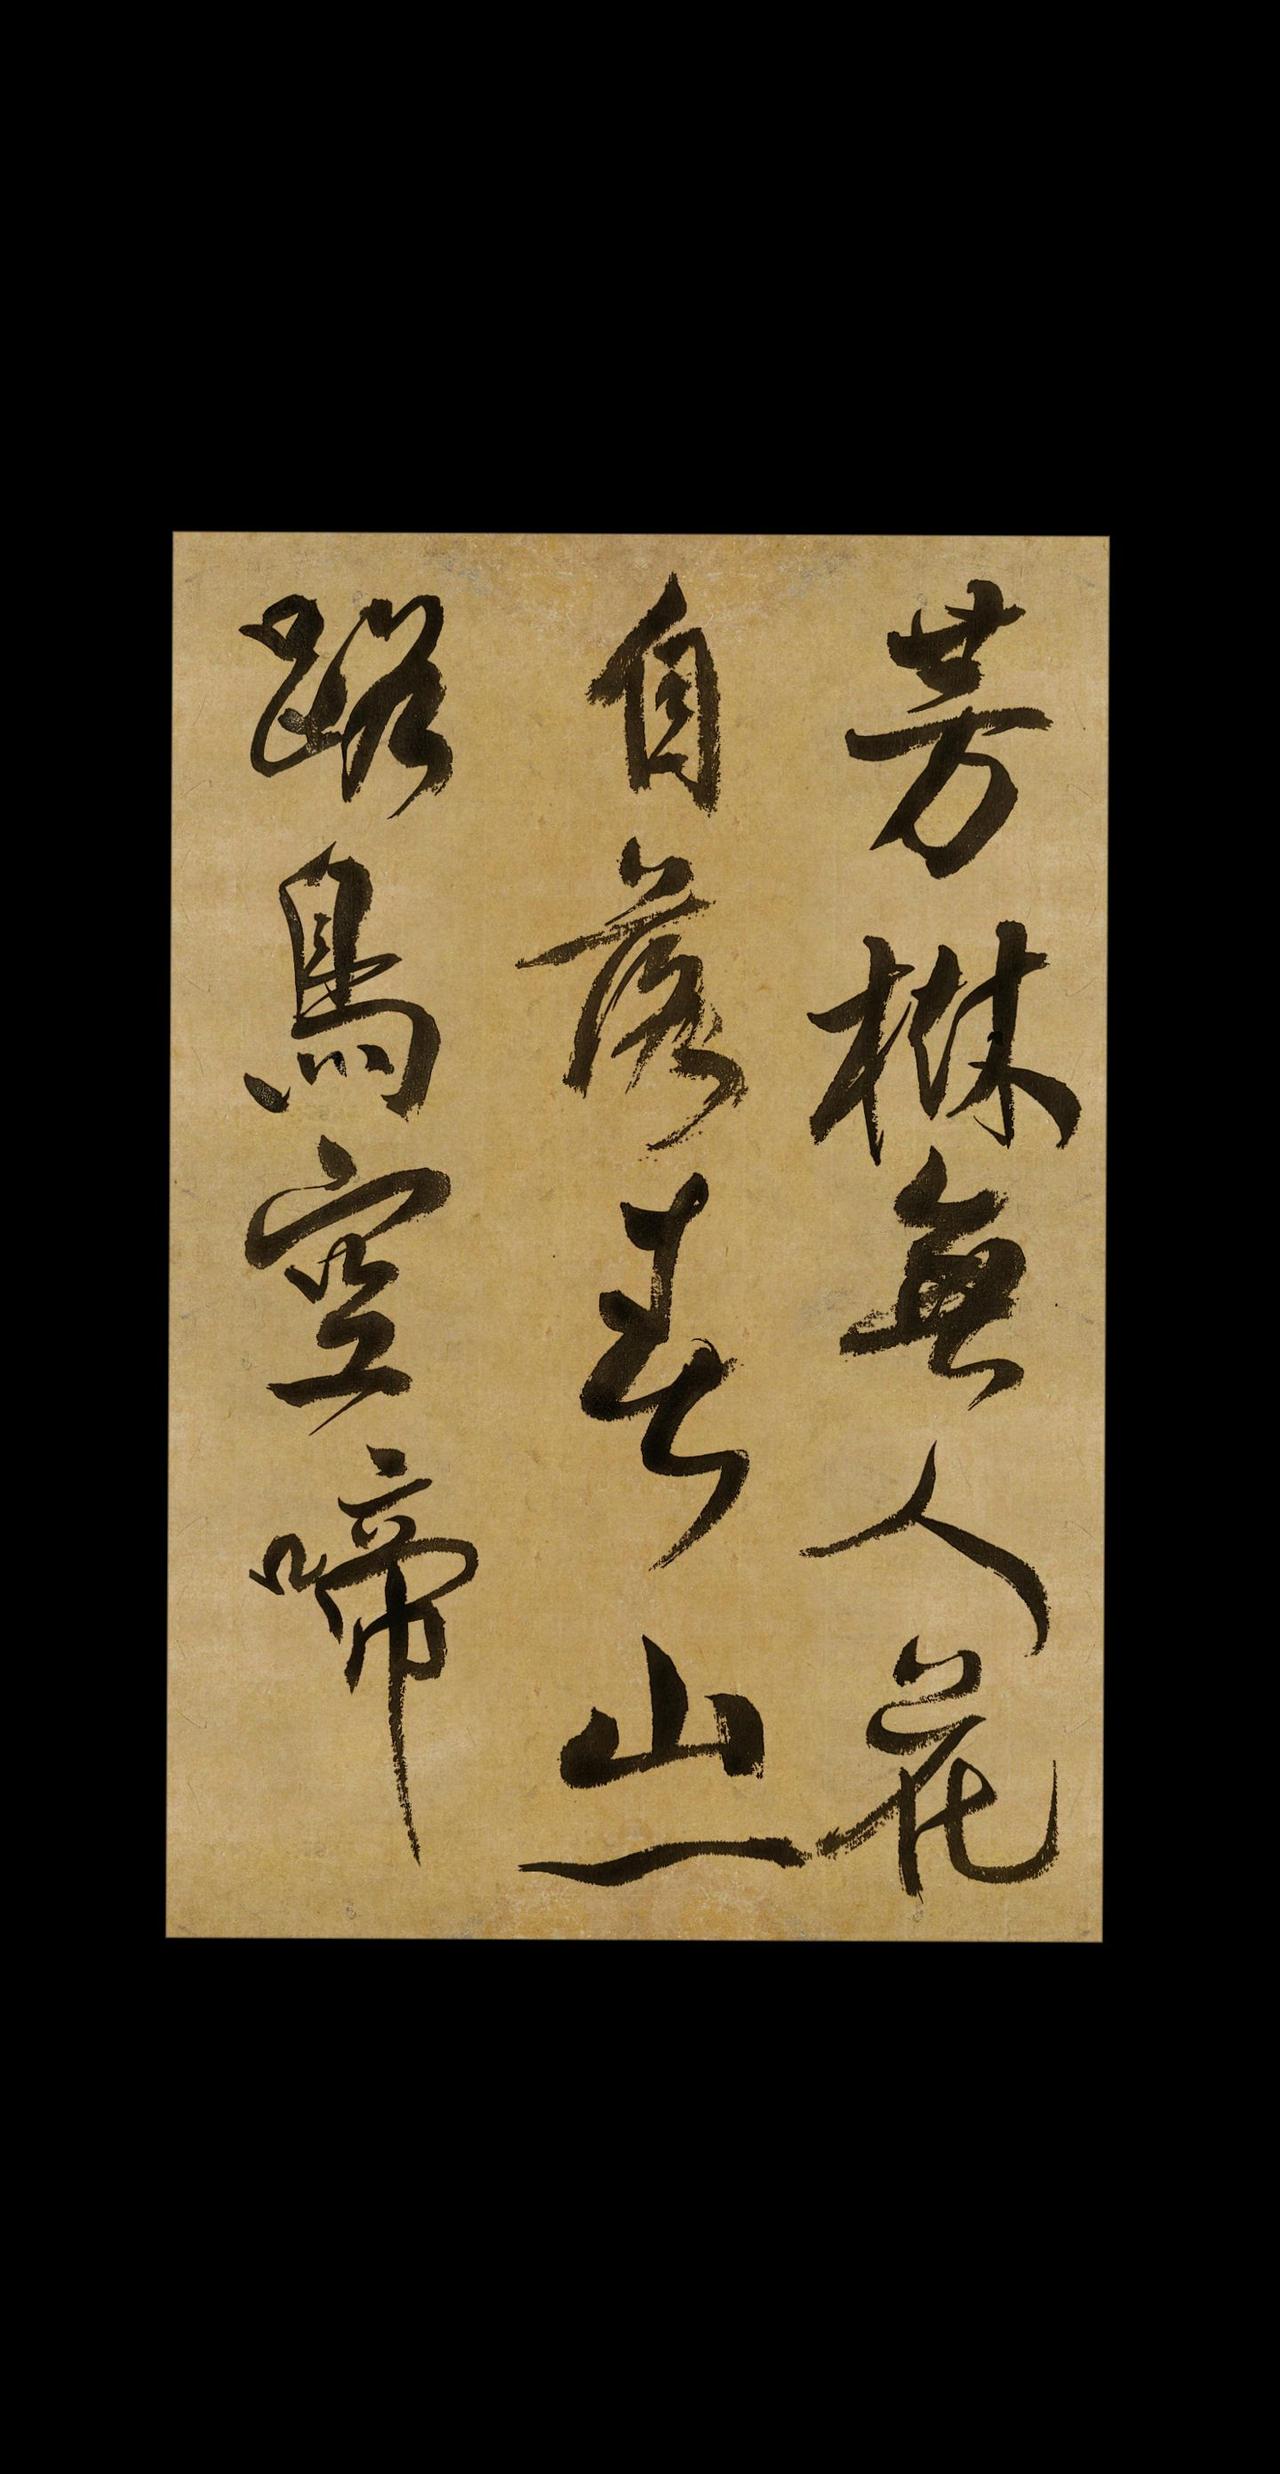 芳樹無人花
自落春山一
路鳥空啼